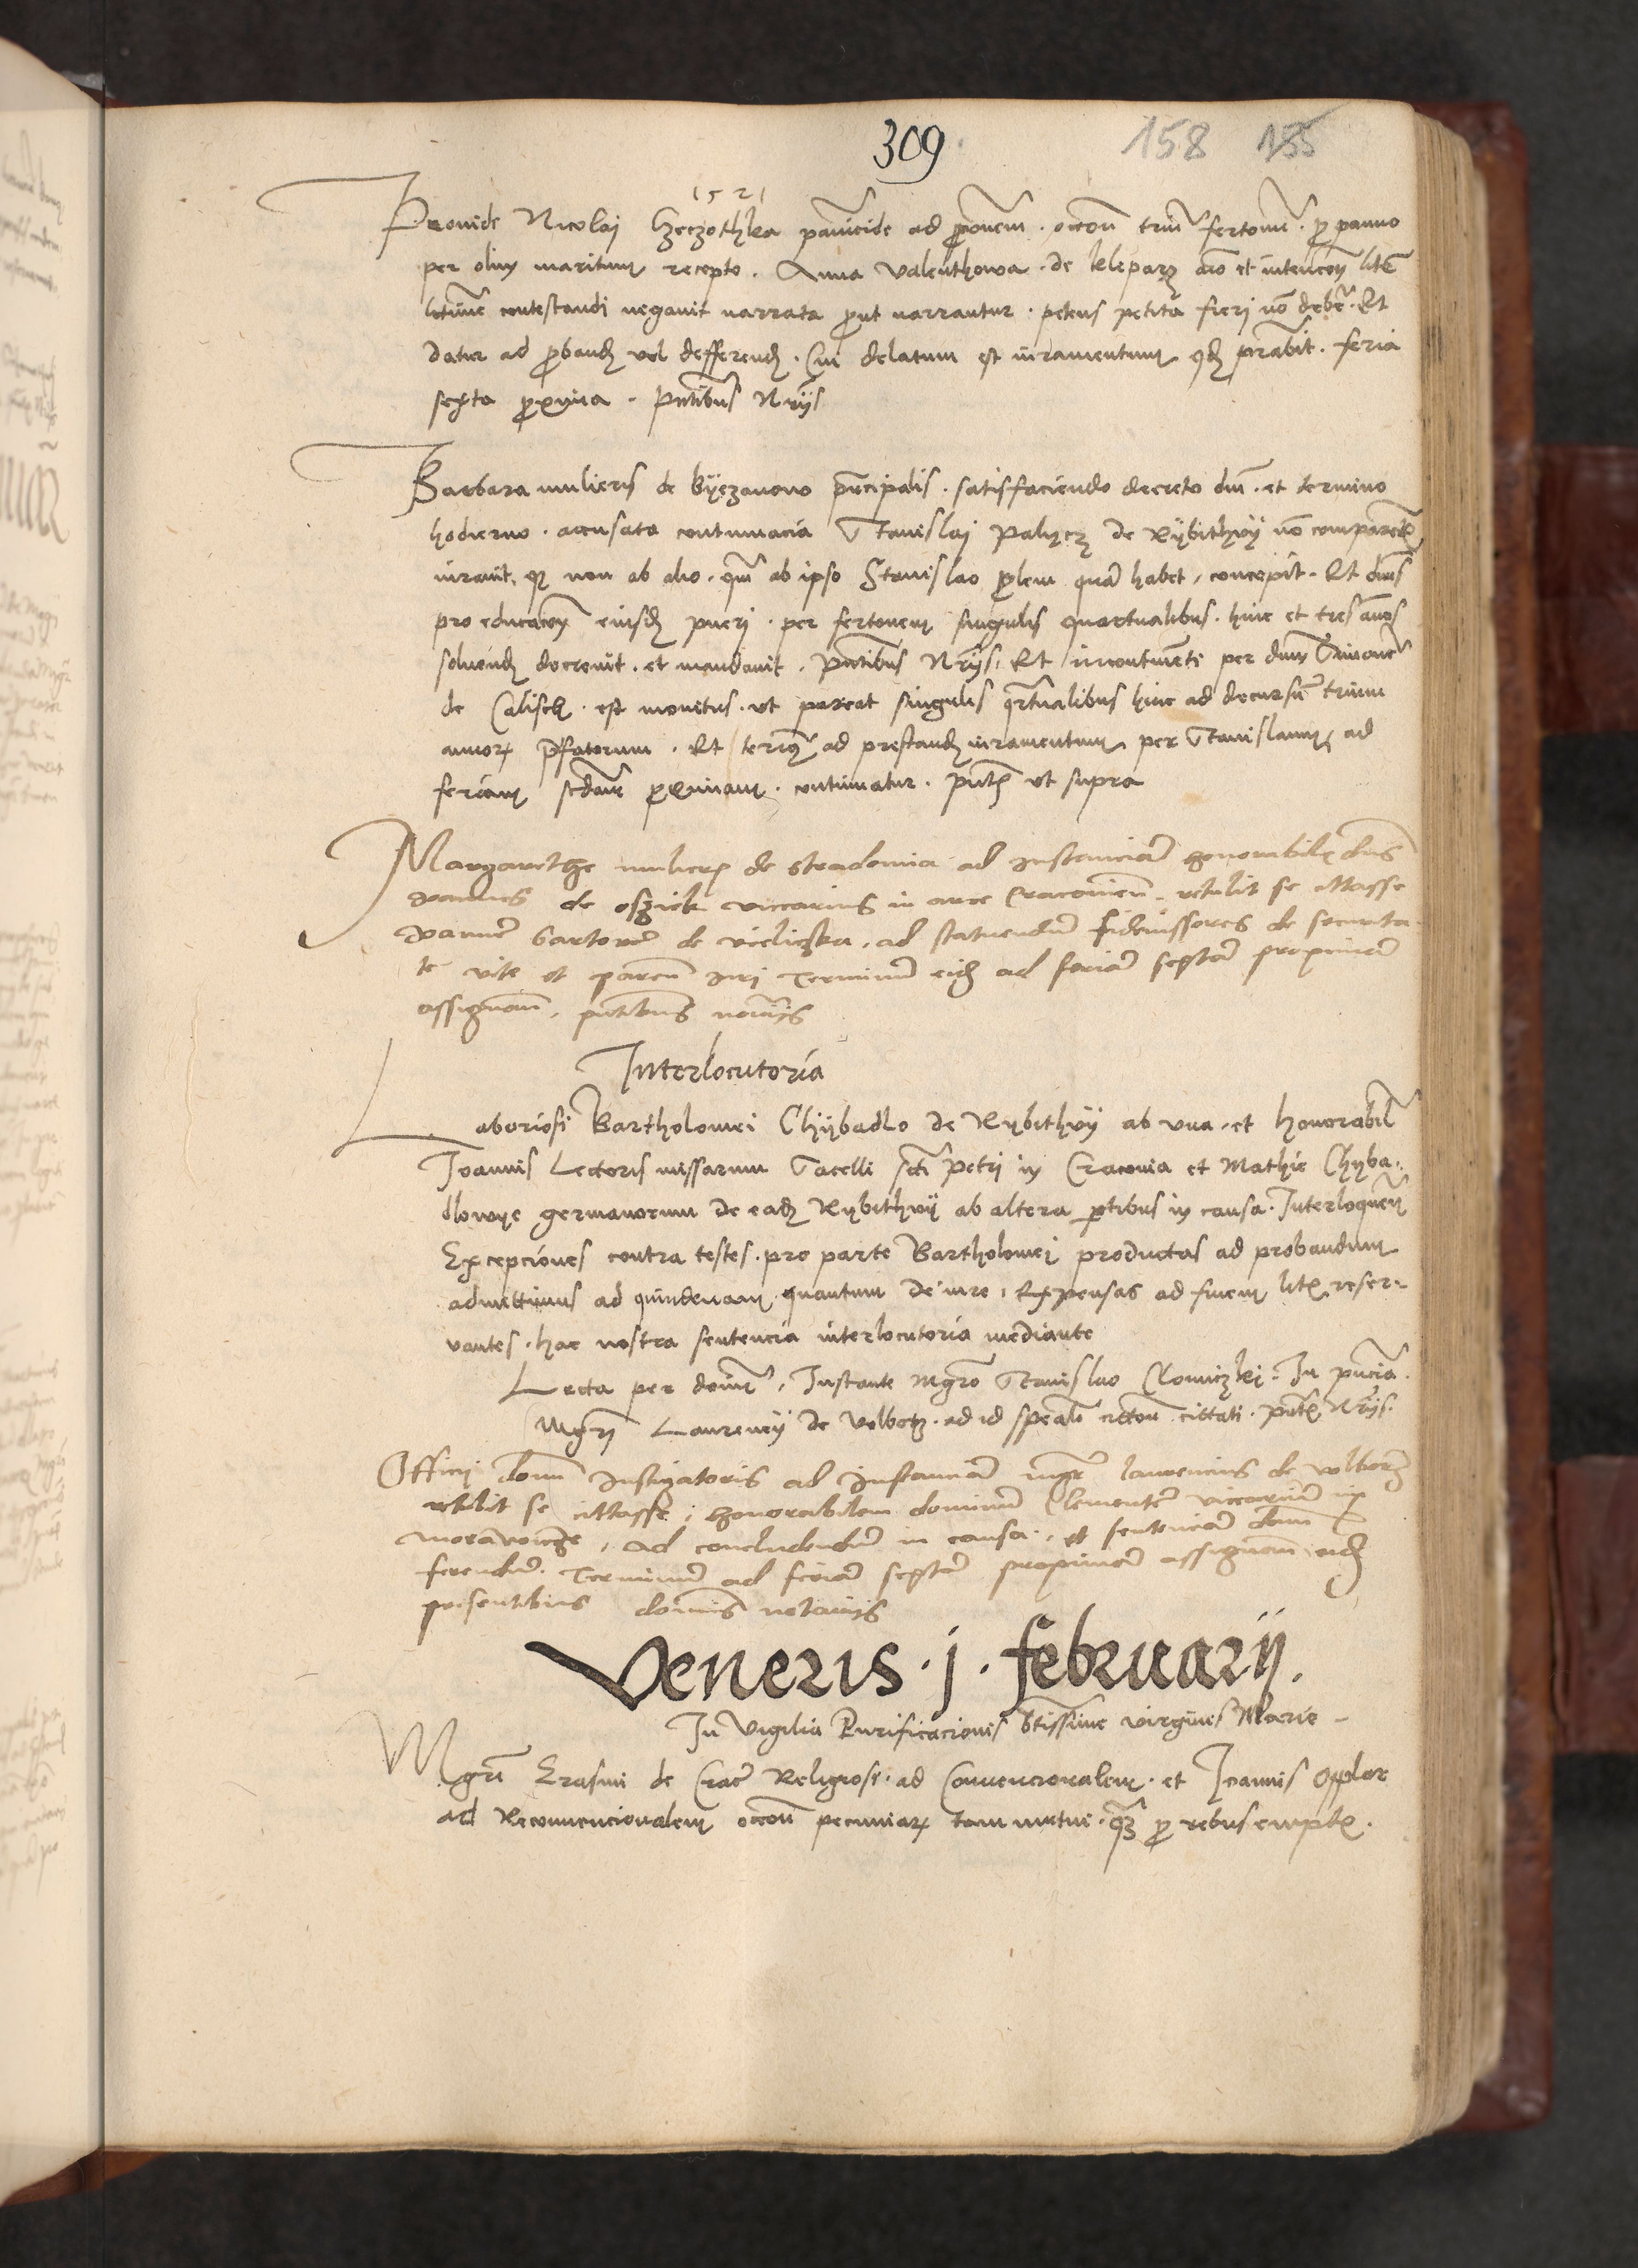 309 158 155
1521
Provide Nicolaj Gzeczothka pannicide ad proonem occon trium fertonum pro panno
per olim maritum recepto. Anna Valenthowa de Kleparz animo et intencon litem
contestandi negavit narrata prout narrantur. petens petita fieri non debere. Et
datur ad proband vel defferend. Cui delatum est iuramentum qd prestabit. feria
sexta proxima. Pntibus Nrijs
Barbara mulieris de Byezanowo principalis. satisfaciendo decreto dni. et termino
hodierno. accusata contumacia Stanislaj Paluch de Rybithwy non comparentis
iuravit, q non ab alio. qm ab ipso Stanislao prolem quam habet, concepit. Et dnus
pro educacon eiusd pueri. per fertonem singulis quartualibus. hinc et tres annos
solvend decrevit. et mandavit. Pntibus Nrijs, Et incontinenti per dnm Simonem
de Calisch. est monitus. ut pareat singulis qrtualibus hinc ad decursum trium
annor prefatorum. Et terminus ad prestand iuramentum per Stanislaum ad
feriam scdam proximam. continuatur. Pntibus ut supra
Margarethe mulieris de Stradomia ad instanciam honorabilis dnus
Joannes de Oszviek viccarius in arce Cracovien. retulit se cittasse
Joannem Bartoney de Vieliczka, ad statuendum fideiussores de securita
te vite et parend iuri Terminum eid ad feriam sextam proximam
assignam, pntibus notarijs
Interlocutoria
Laboriosi Bartholomei Chybadlo de Rybithwy ab una. et honorabil
Joannis Lectoris missarum Sacelli scti Petri in Cracovia et Mathie Chyba
dlowye germanorum de ead Rybithwy ab altera ptibus in causa. Interloquen
Excepciones contra testes. pro parte Bartholomei productas ad probandum
admittimus ad quindenam quantum de iure, Expensas ad finem litis reser
vantes. hac nostra sentencia interlocutoria mediante
Lecta per dominum, Instante Mgro Stanislao Clomiczki. In pncia
Mgri Laurencij de Volborz. ad id specialiter citton cittati. pntibus Nrijs.
Officij domini Instigatoris ad instanciam mgr laurencius de volborz
retulit se cittasse, honorabilem dominum Clementem viccarium in
Morawicze, ad concludendum in causa. et sentenciam domini
ferendum. Terminum ad feriam sextam proximam assignam eid
presentibus dominis notarijs
Veneris . j . februarij.
In Vigilia Purificacionis btissime virginis Marie
Mgri Erasmi de Crac Religiosi. ad Convencionalem. et Joannis Oppler
ad Reconvencionalem occon pecuniar tam mutui. qm pro rebus emptis.